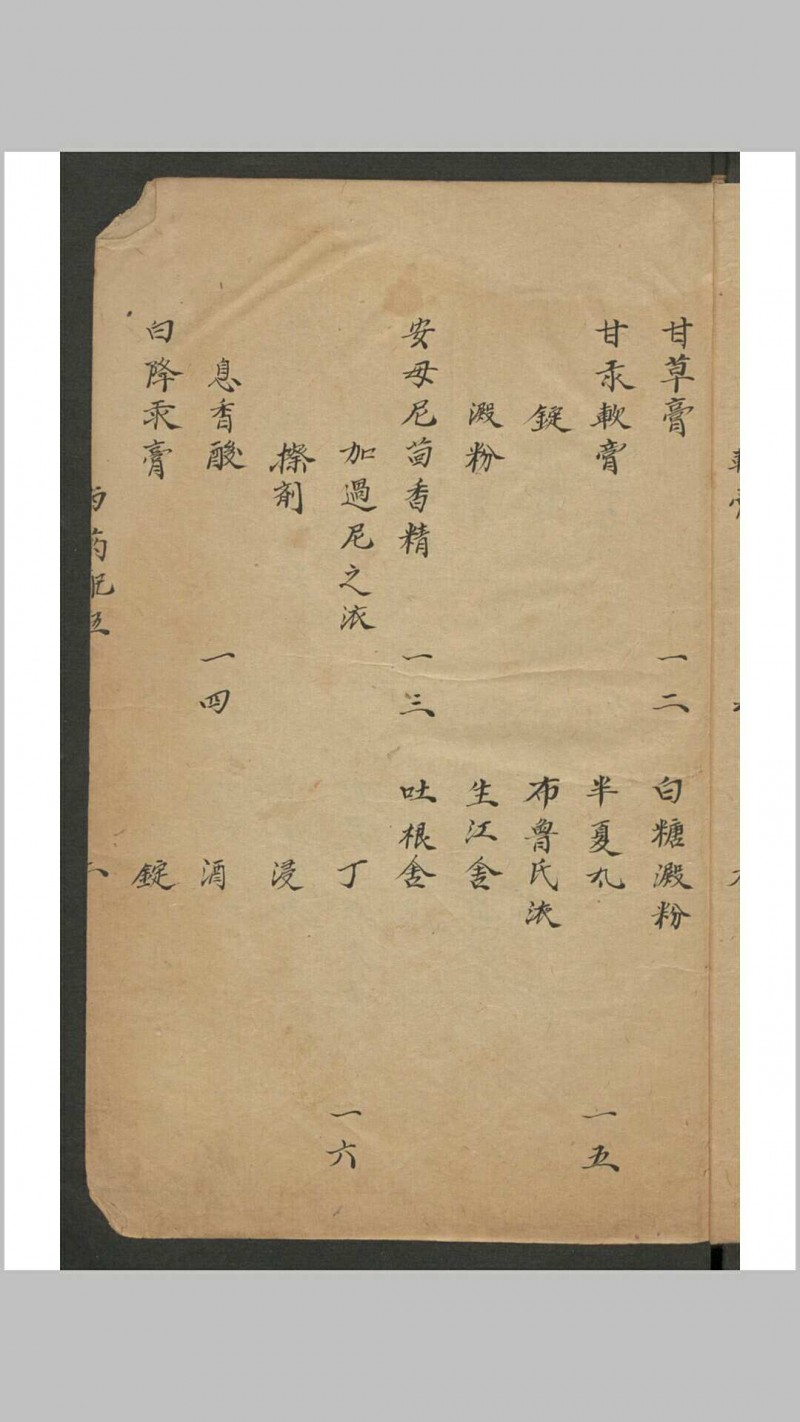 甘草膏 一二
甘汞軟膏
錠
澱粉
安母尼茴香精 一三
加過尼之液
擦剤
息香酸 一四
白降汞膏
白糖澱粉
半夏丸 一五
布魯氏液
生江舍
吐根舍
丁 一六
浸
酒
錠
西药配伍